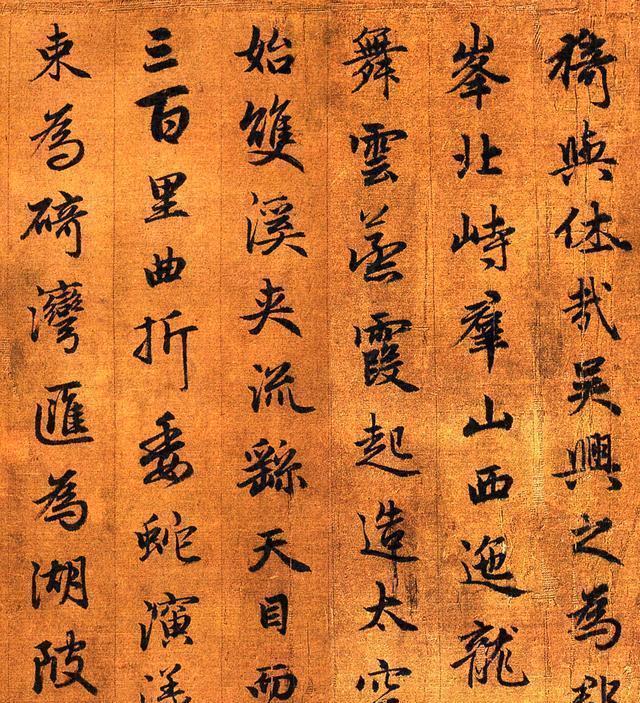 猗與休哉吳興之為郡
峯北峙羣山西迤龍
舞雲蒸霞起造太空
始雙溪夾流繇天目而
三百里曲折委蛇演漾
束為碕灣匯為湖陂